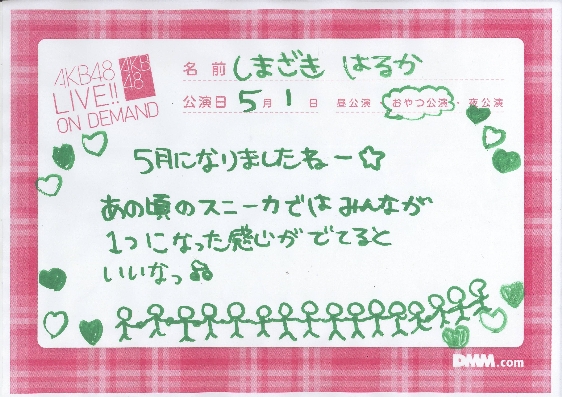 AKB48
LIVE!!
ON DEMAND
AKB
48
名前 しまざき はるか
公演日 5月 1日 昼公演・おやつ公演・夜公演
5月になりましたねー☆
あの頃のスニーカではみんなが
1つになった感じがでてると
いいなっ♫
DMM.com